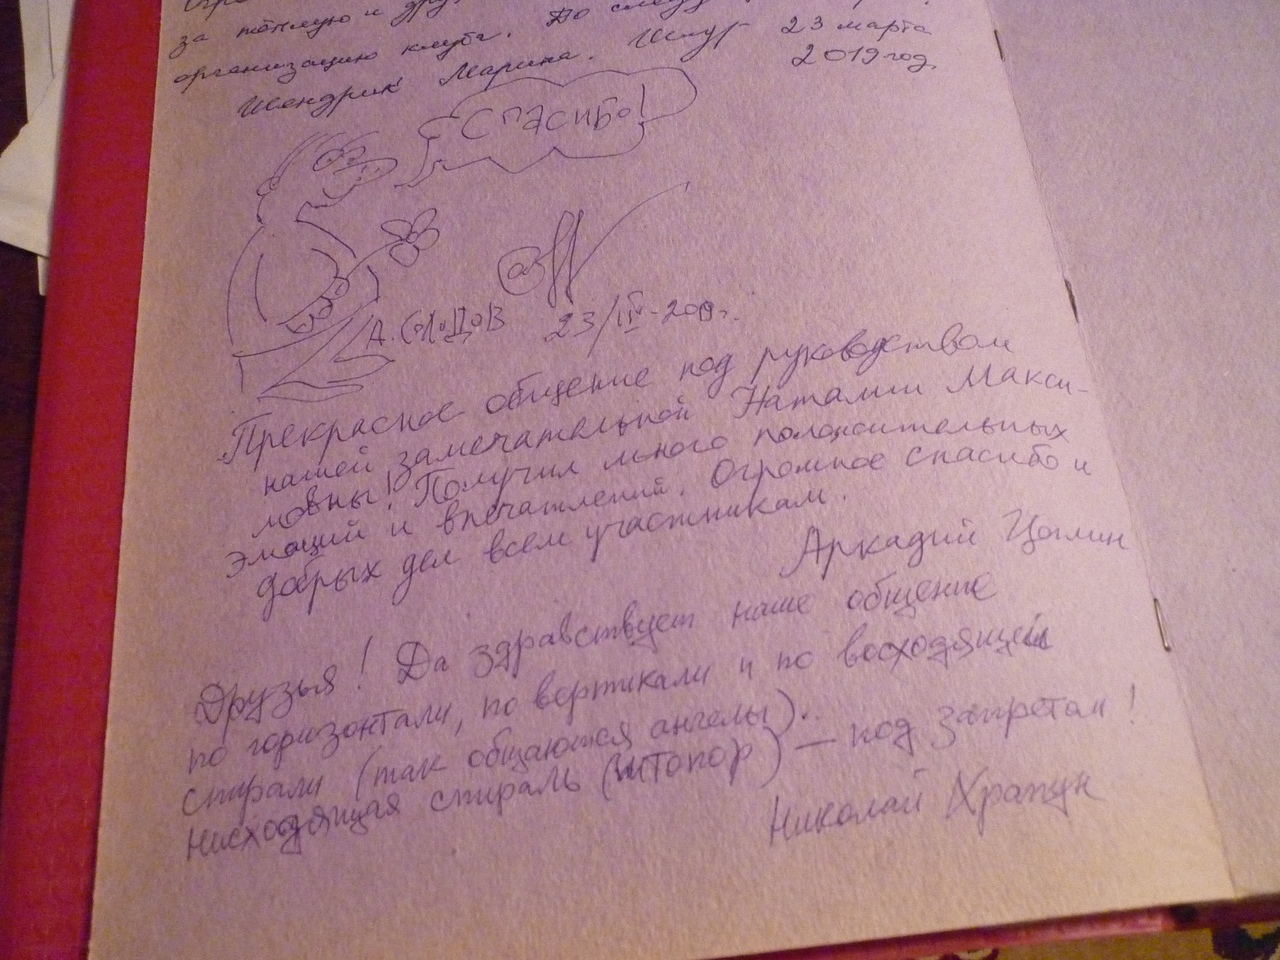 за тёплую и
организацию клуба. До
Шендрик Марина. 23 марта
2019 год.
Спасибо!
А. Солодов 23/III-2019г.
Прекрасное общение под руководством
нашей замечательной Наталии Макси-
мовны! Получил много положительных
эмоций и впечатлений. Огромное спасибо и
добрых дел всем участникам.
Аркадий Цымин
Друзья! Да здравствует наше общение
по горизонтали, по вертикали и по восходящей
спирали (так общаются ангелы).
Нисходящая спираль (штопор) — под запретом!
Николай Храпун